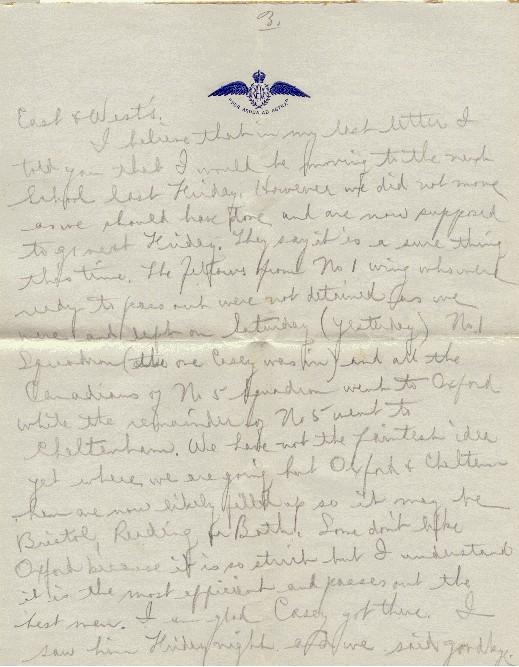 3.
PER ARDUA AD ASTRA
East & West's.
I believe that in my last letter I
told you that I would be moving to the next
School last Friday. However we did not move
as we should have done and are now supposed
to go next Friday. They say it is a sure thing
this time. The fellows from No 1 wing who were
ready to pass out were not detained as we
were and left on Saturday (yesterday) No. 1
Squadron (the one Casey was in) and all the
Canadians of No 5 Squadron went to Oxford
while the remainder of No 5 went to
Cheltenham. We have not the faintest idea
yet where we are going but Oxford & Chelten
ham are now likely filled up so it may be
Bristol, Reading or Bath. Some don't like
Oxford because it is so strict but I understand
it is the most efficient and passes out the
best men. I am glad Casey got there. I
saw him Friday night and we said goodbye.